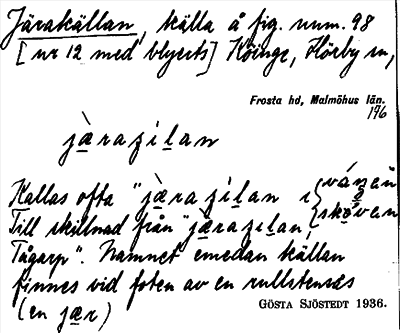 Järakällan, källa å fig. num. 98
[nr 12 med blyerts] Köinge, Hörby sn,
Frosta hd, Malmöhus län.
176
jæraʒilan
Kallas ofta "jæraʒilan i
Till skillnad från "jæraʒilan,
Tågarp". Namnet emedan källan
finnes vid foten av en rullstensås
(en jær)
GÖSTA SJÖSTEDT 1936.